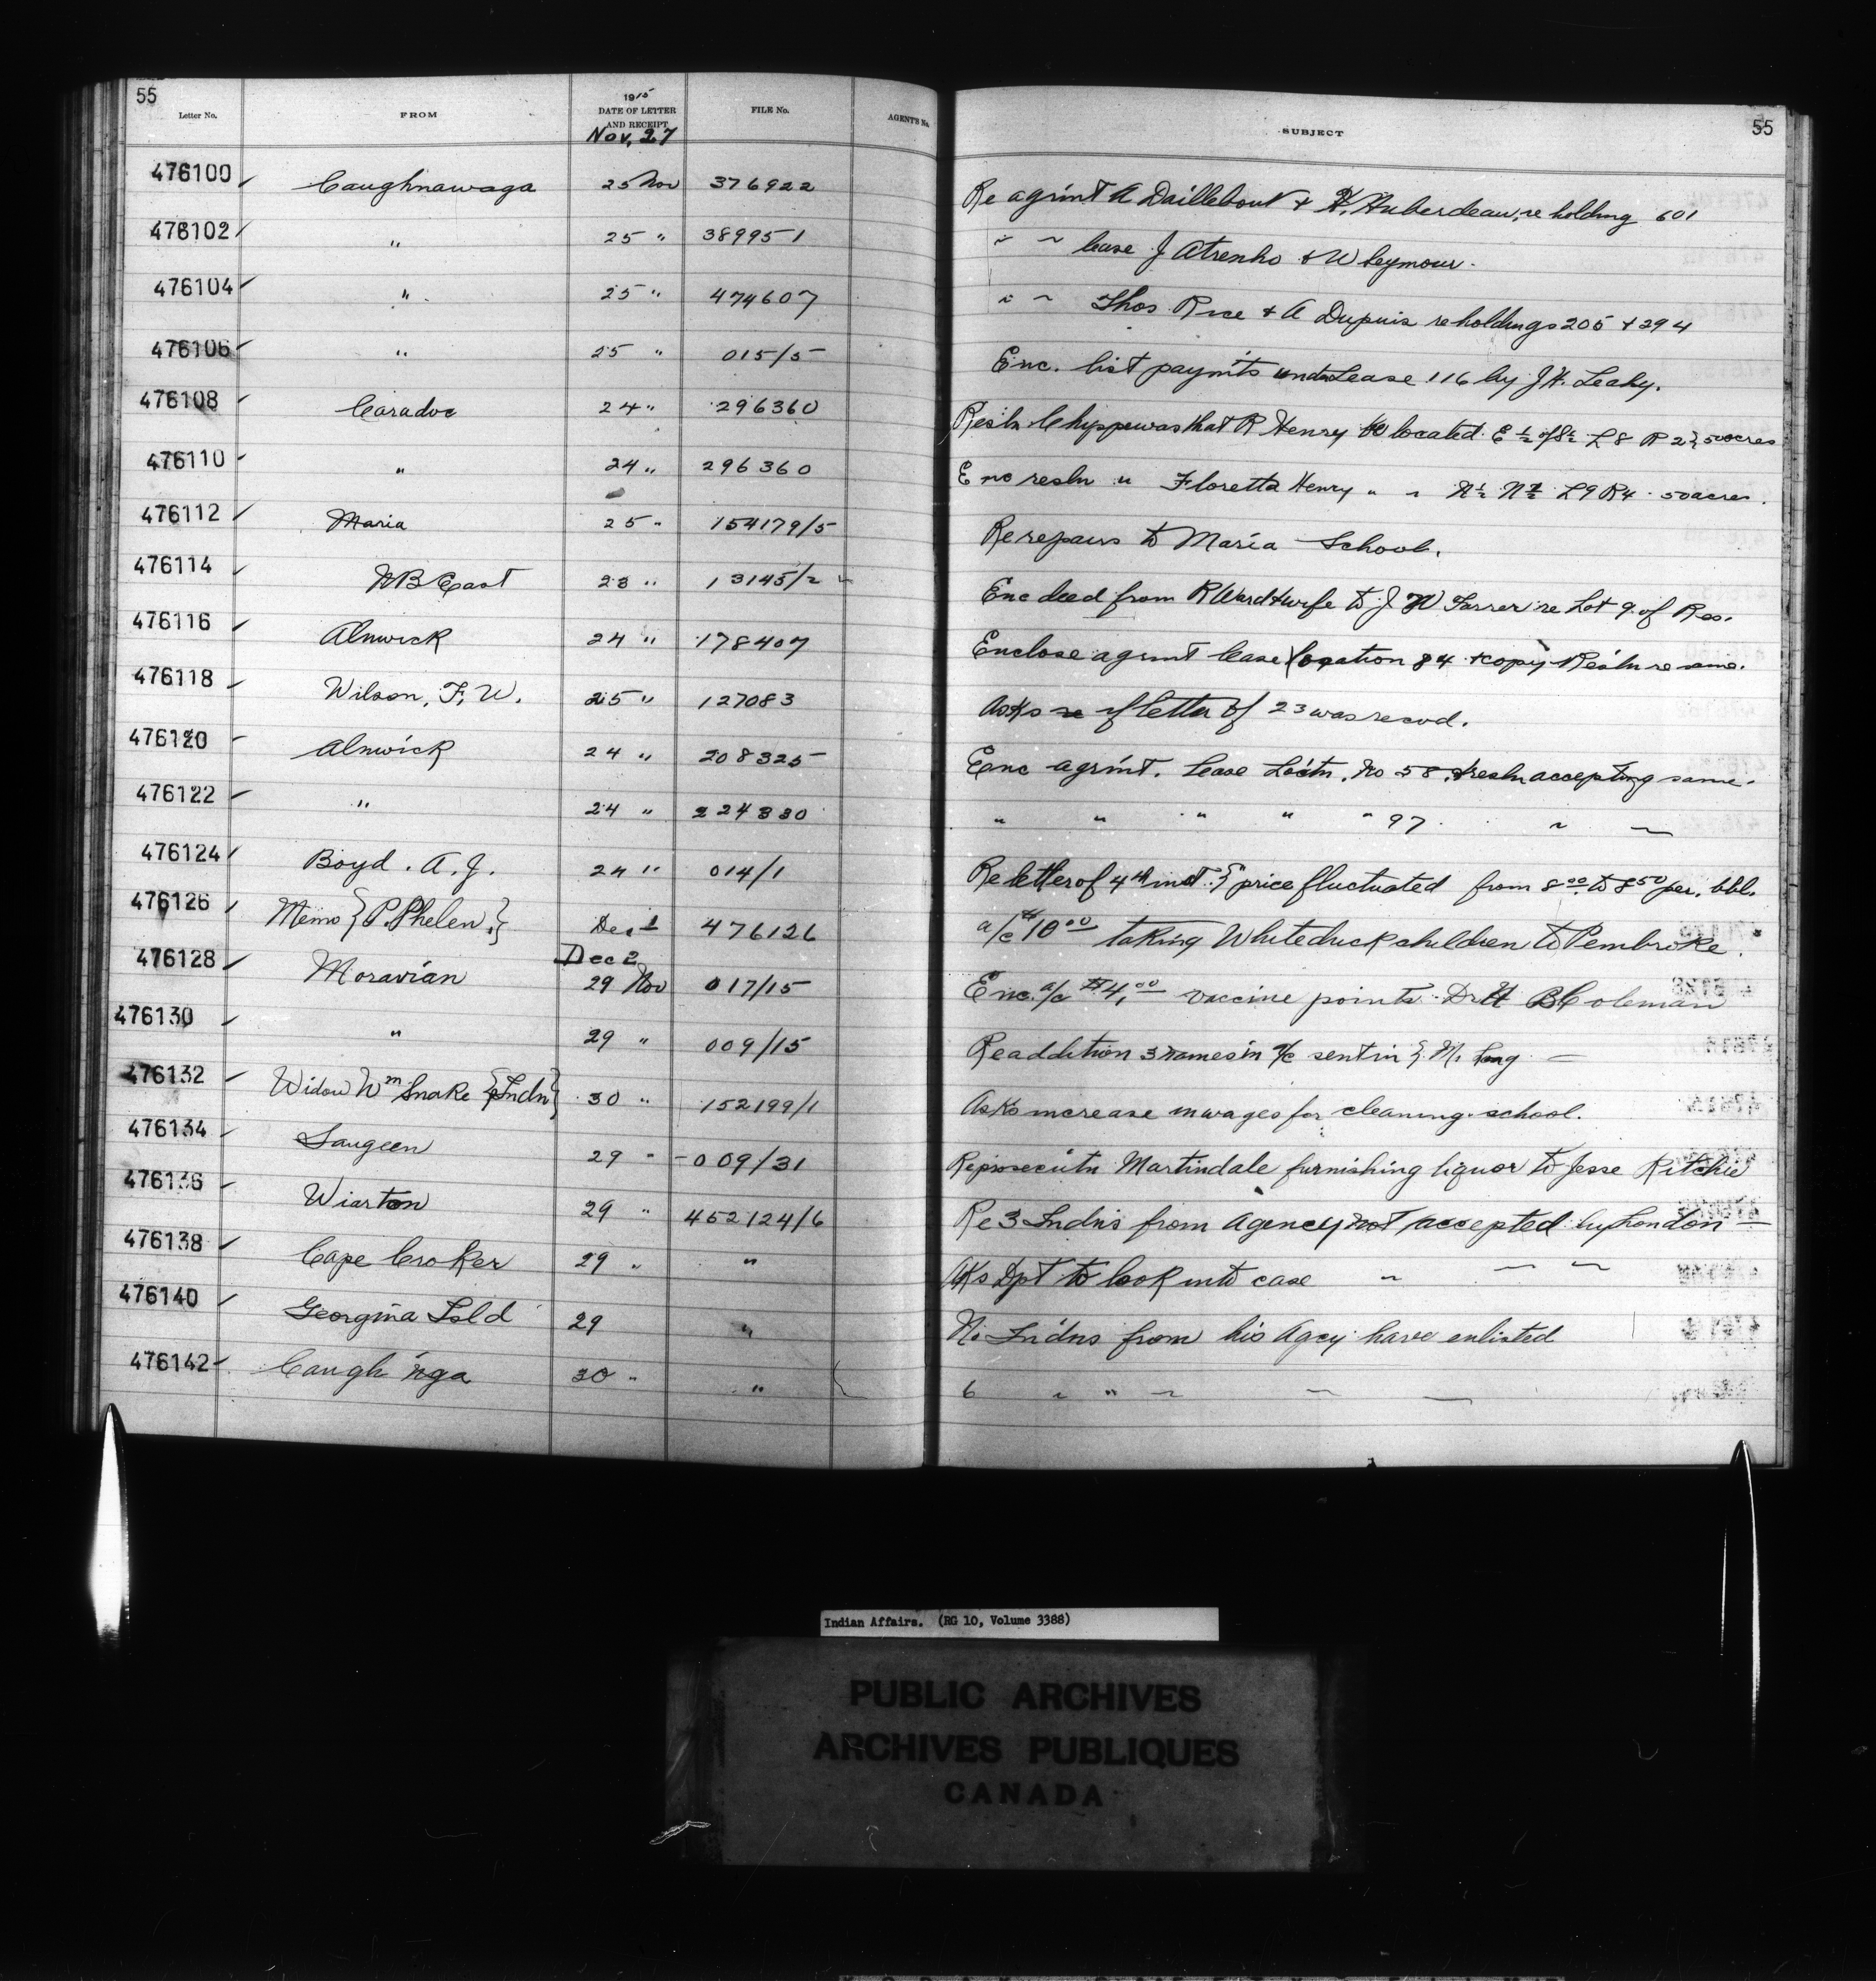 55 55
Letter No. FROM 1915 DATE OF LETTER AND RECEIPT FILE No. AGENT'S No. SUBJECT
Nov. 27
476100 Caughnawaga 25 Nov 376922 Re agrmt A Daillebout & H. Huberdeau, re holding 601
476102 " 25 " 389951 " " lease J Atrenho & W Seymour.
476104 " 25 " 474607 " " Thos Rice & A Dupuis re holdings 205 & 294
476106 " 25 " 015/5 Enc. list paymts under Lease 116 by J.H. Leahy.
476108 Caradoc 24 " 296360 Resln Chippewas that R Henry be located E ½ of S ½ L 8 R 2} 50 acres
476110 " 24 " 296360 Enc resln " Floretta Henry " " N ½ N ½ L 9 R 4 50 acres.
476112 Maria 25 " 154179/5 Re repairs to Maria School.
476114 NB East 23 " 13145/2 Enc deed from R Ward & wife to J W Farrer re Lot 9 of Res.
476116 Alnwick 24 " 178407 Enclose agrmt lease location 84 & copy Resln re same.
476118 Wilson, F. W. 25 " 127083 Asks re if letter of 23 was recvd.
476120 Alnwick 24 " 208325 Enc agrmt. Lease Loctn. No 58. & resln accepting same.
476122 " 24 " 224330 " " " " " 97 " "
476124 Boyd. A. J. 24 " 014/1 Re letter of 4th inst. } price fluctuated from 8⁰⁰ to 8⁵⁰ per. bbl.
476126 Memo {P. Phelen.} Dec 1 476126 a/c $10⁰⁰ taking Whiteduck children to Pembroke.
Dec 2
476128 Moravian 29 Nov 017/15 Enc. a/c $4.⁰⁰ vaccine points. Dr H B Coleman
476130 " 29 " 009/15 Re addition 3 names in a/c sent in } M.
476132 Widow Wm Snake {Indn} 30 " 152199/1 Asks increase in wages for cleaning school.
476134 Saugeen 29 " 009/31 Re prosecutn Martindale furnishing liquor to Jesse Ritchie
476136 Wiarton 29 " 452124/6 Re 3 Indns from Agency not accepted by London
476138 Cape Croker 29 " " Aks Dpt to look into case " " "
476140 Georgina Isld 29 " No Indns from his Agcy have enlisted
476142 Caugh'nga 30 " " 6 " " " " "
Indian Affairs. (RG 10, Volume 3388)
PUBLIC ARCHIVES
ARCHIVES PUBLIQUES
CANADA